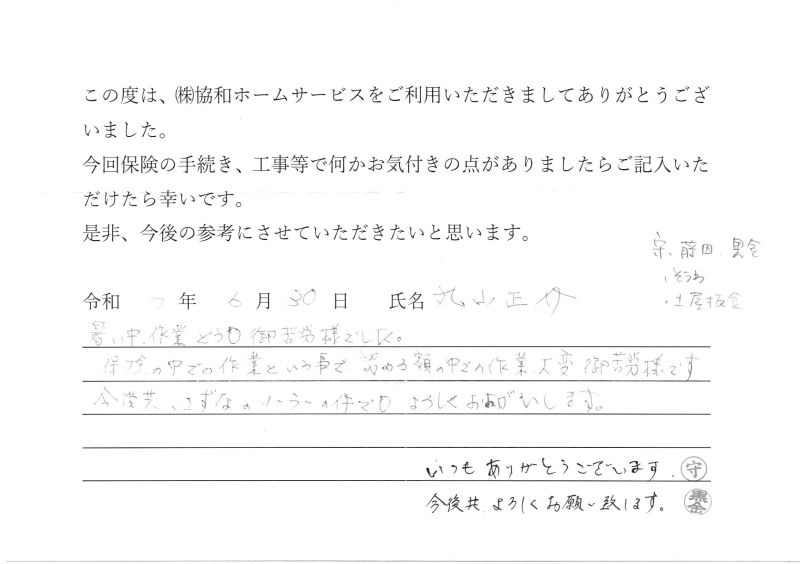 この度は、㈱協和ホームサービスをご利用いただきましてありがとうござ
いました。
今回保険の手続き、工事等で何かお気付きの点がありましたらご記入いた
だけたら幸いです。
是非、今後の参考にさせていただきたいと思います。
守、蒔田、黒金
・そうわ
・土屋板金
令和 7 年 6 月 30 日 氏名 丸山正
暑い中、作業どうも御苦労様でした。
保険の中での作業という事で認める額の中での作業、大変御苦労様です
今後共、きずなのソーラーの件でも よろしくおねがいします。
いつもありがとうございます。 守
今後共、よろしくお願い致します。 黒金